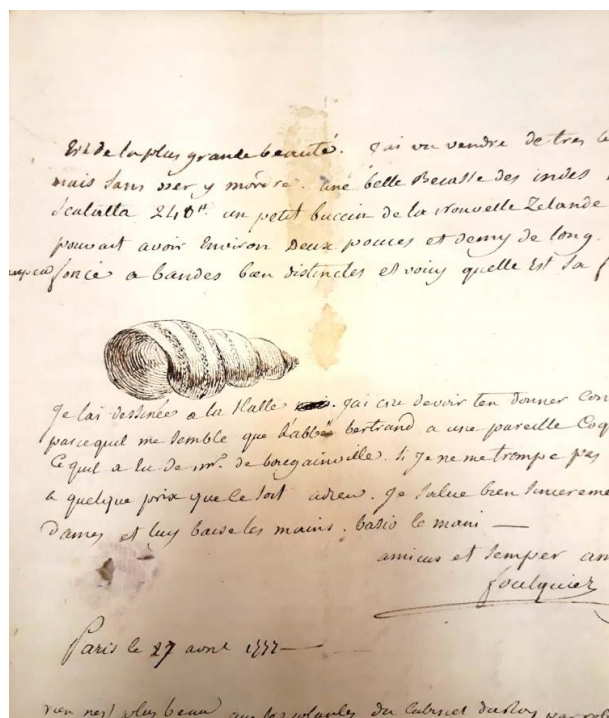 Est de la plus grande beauté. J'ai vu vendre de tres
mais sans oser y mordre. une belle Becasse des indes
Scalatta 240ᵗᵗ. un petit buccin de la nouvelle Zelande
pouvait avoir Environ Deux pouces et demy de long.
un peu foncé a bandes bien distinctes et voicy quelle Est sa f
Je l'ai dessinée a la Halle. J'ai cru devoir t'en donner con
parcequ'il me semble que L'abbé bertrand a une pareille Coq
Ce qu'il a eu de mʳ. de bougainville. Si Je ne me trompe pas
a quelque prix que ce soit adieu. Je salue bien sinceremen
Dames et luy baise les mains. basio le mani —
amicus et semper am
foulquier
Paris le 27 avril 1777 —
rien n'est plus beau que les du Cabinet du Roy